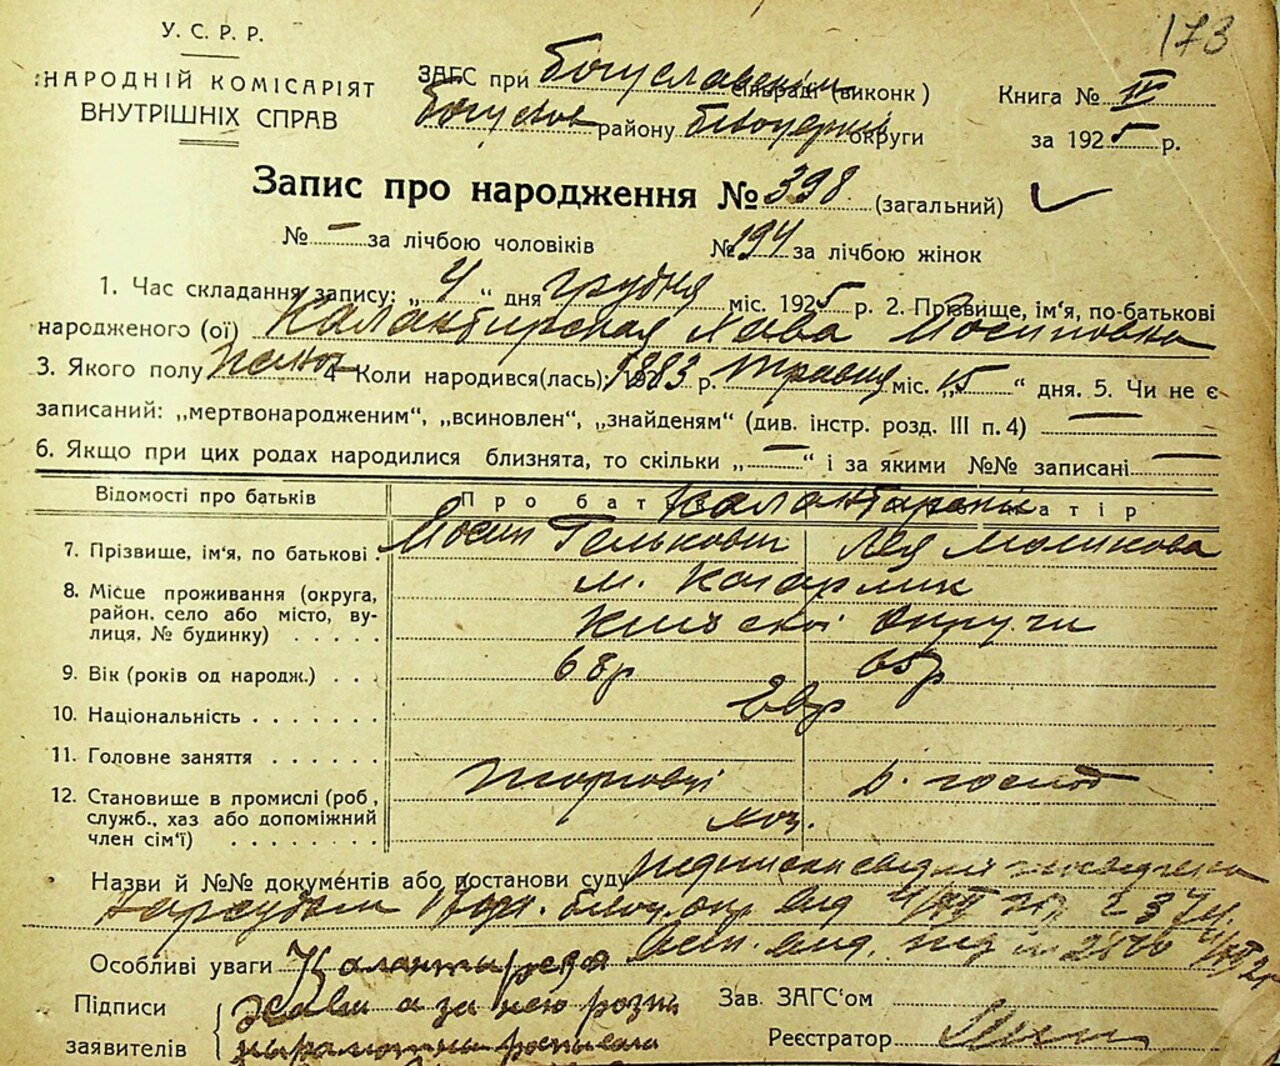 173
У. С. Р. Р.
НАРОДНІЙ КОМІСАРІЯТ
ВНУТРІШНІХ СПРАВ
ЗАГС при Богуславськім сільраді (виконк)
Богуслав району Білоцерків округи
Книга № IV
за 1925 р.
Запис про народження № 398 (загальний)
№ — за лічбою чоловіків № 194 за лічбою жінок
1. Час складання запису: „4“ дня грудня міс. 1925 р. 2. Прізвище, ім‘я, по-батькові
народженого (ої) Калантирская Хава Иосиповна
3. Якого полу жіноч 4 Коли народився(лась): 1883 р. травня міс. „15“ дня. 5. Чи не є
записаний: „мертвонародженим“, „всиновлен“, „знайденям“ (див. інстр. розд. III п. 4) —
6. Якщо при цих родах народилися близнята, то скільки „—“ і за якими №№ записані —
Відомості про батьків Про бат Калантарські матір
7. Прізвище, ім'я, по батькові Иосип Гельковит Лея
8. Місце проживання (округа, м. Кагарлик
район, село або місто, ву-
лиця, № будинку) Київської округи
9. Вік (років од народж.) 68р 65р
10. Національність Евр
11. Головне заняття
12. Становище в промислі (роб, торговці д. господ
служб., хаз або допоміжний хоз.
член сім'ї)
Назви й №№ документів або постанови суду
Нарсудом
Особливі уваги Калантирская
Підписи Хава а за нею розпи
заявителів
Зав. ЗАГС'ом
Реєстратор